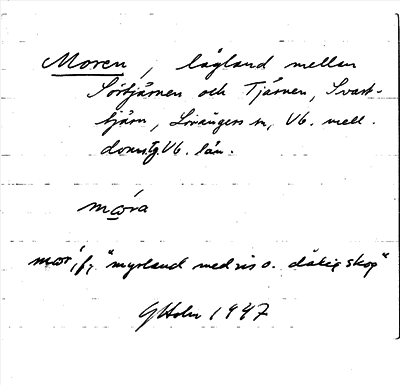 Moren, lågland mellan
Sörtjärnen och Tjärnen, Svart-
tjärn, Lövångers sn, Vb. mell.
domsg Vb. län.
mɷ́ra
mɷr, f, "myrland med ris o. dålig skog"
GHolm 1947